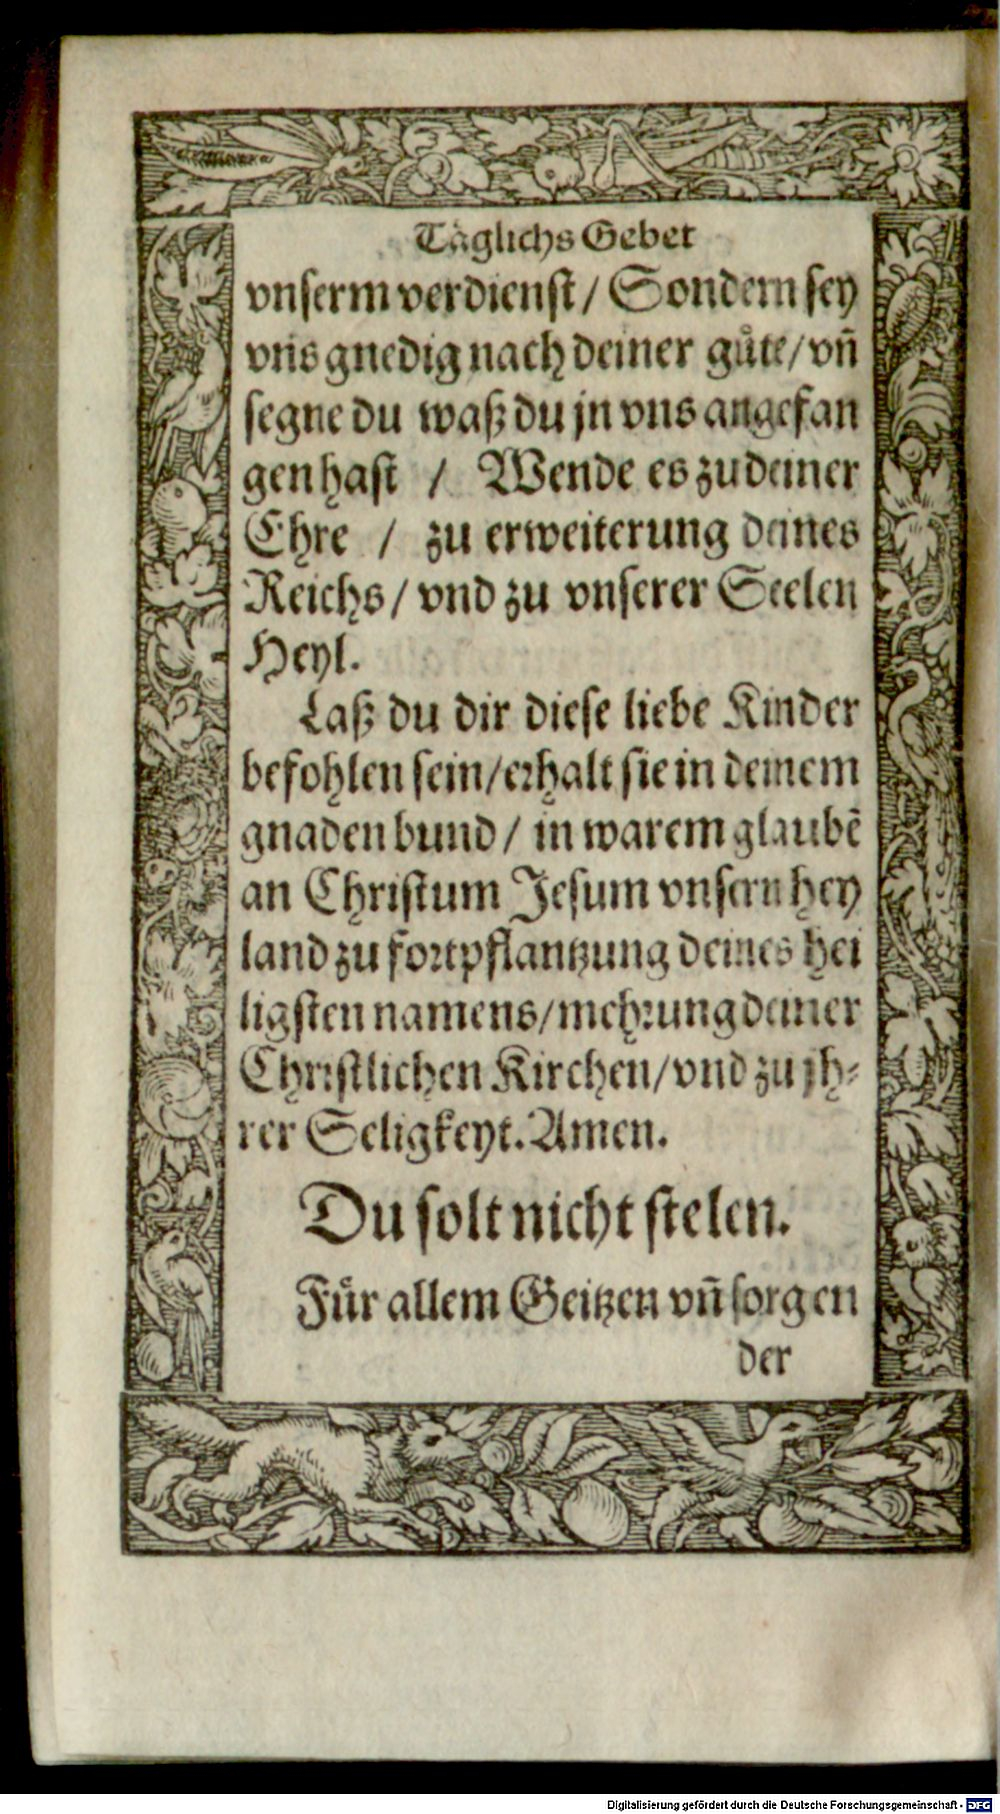 Täglichs Gebet
vnserm verdienst / Sondern sey
vns gnedig nach deiner gůte / vñ
segne du waß du jn vns angefan
gen hast / Wende es zu deiner
Ehre / zu erweiterung deines
Reichs / vnd zu vnserer Seelen
Heyl.
Laß du dir diese liebe Kinder
befohlen sein / erhalt sie in deinem
gnaden bund / in warem glaubẽ
an Christum Jesum vnsern hey
land zu fortpflantzung deines hei
ligsten namens / mehrung deiner
Christlichen Kirchen / vnd zu jh⸗
rer Seligkeyt. Amen.
Du solt nicht stelen.
Fůr allem Geitzen vñ sorgen
der
Digitalisierung gefördert durch die Deutsche Forschungsgemeinschaft - DFG